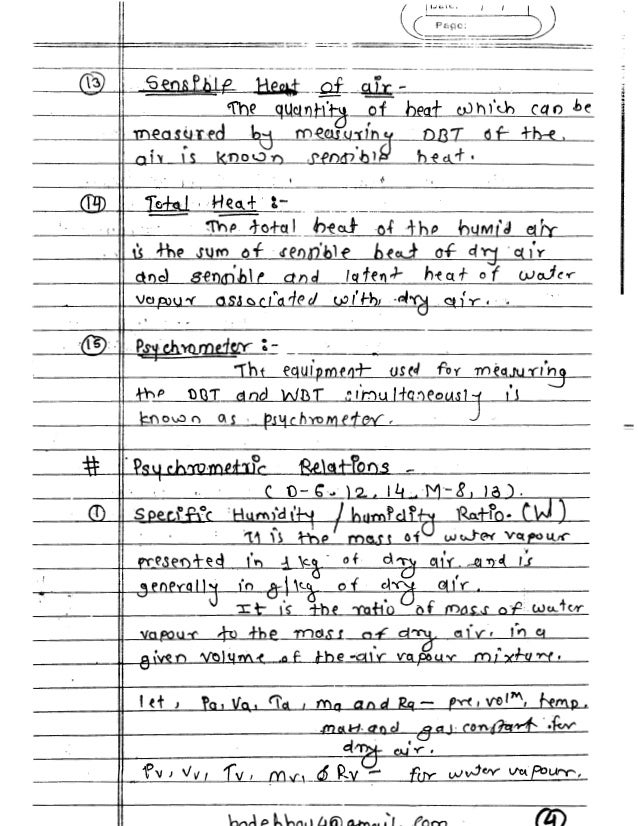 Page:
(13) Sensible Heat of air -
The quantity of heat which can be
measured by measuring DBT of the
air is known sensible heat.
(14) Total Heat :-
The total heat of the humid air
is the sum of sensible heat of dry air
and sensible and latent heat of water
vapour associated with dry air.
(15) Psychrometer :-
The equipment used for measuring
the DBT and WBT simultaneously is
known as psychrometer.
# Psychrometric Relations -
( D-6, 12, 14, M-8, 13 ).
(1) Specific Humidity / humidity Ratio. (W)
It is the mass of water vapour
presented in 1 kg of dry air and is
generally in g/kg of dry air.
It is the ratio of mass of water
vapour to the mass of dry air. in a
given volume of the air vapour mixture.
let, Pa, Va, Ta, ma and Ra - pre, volm, temp.
mass and gas constant for
dry air.
Pv, Vv, Tv, mv, & Rv - for water vapour.
(4)